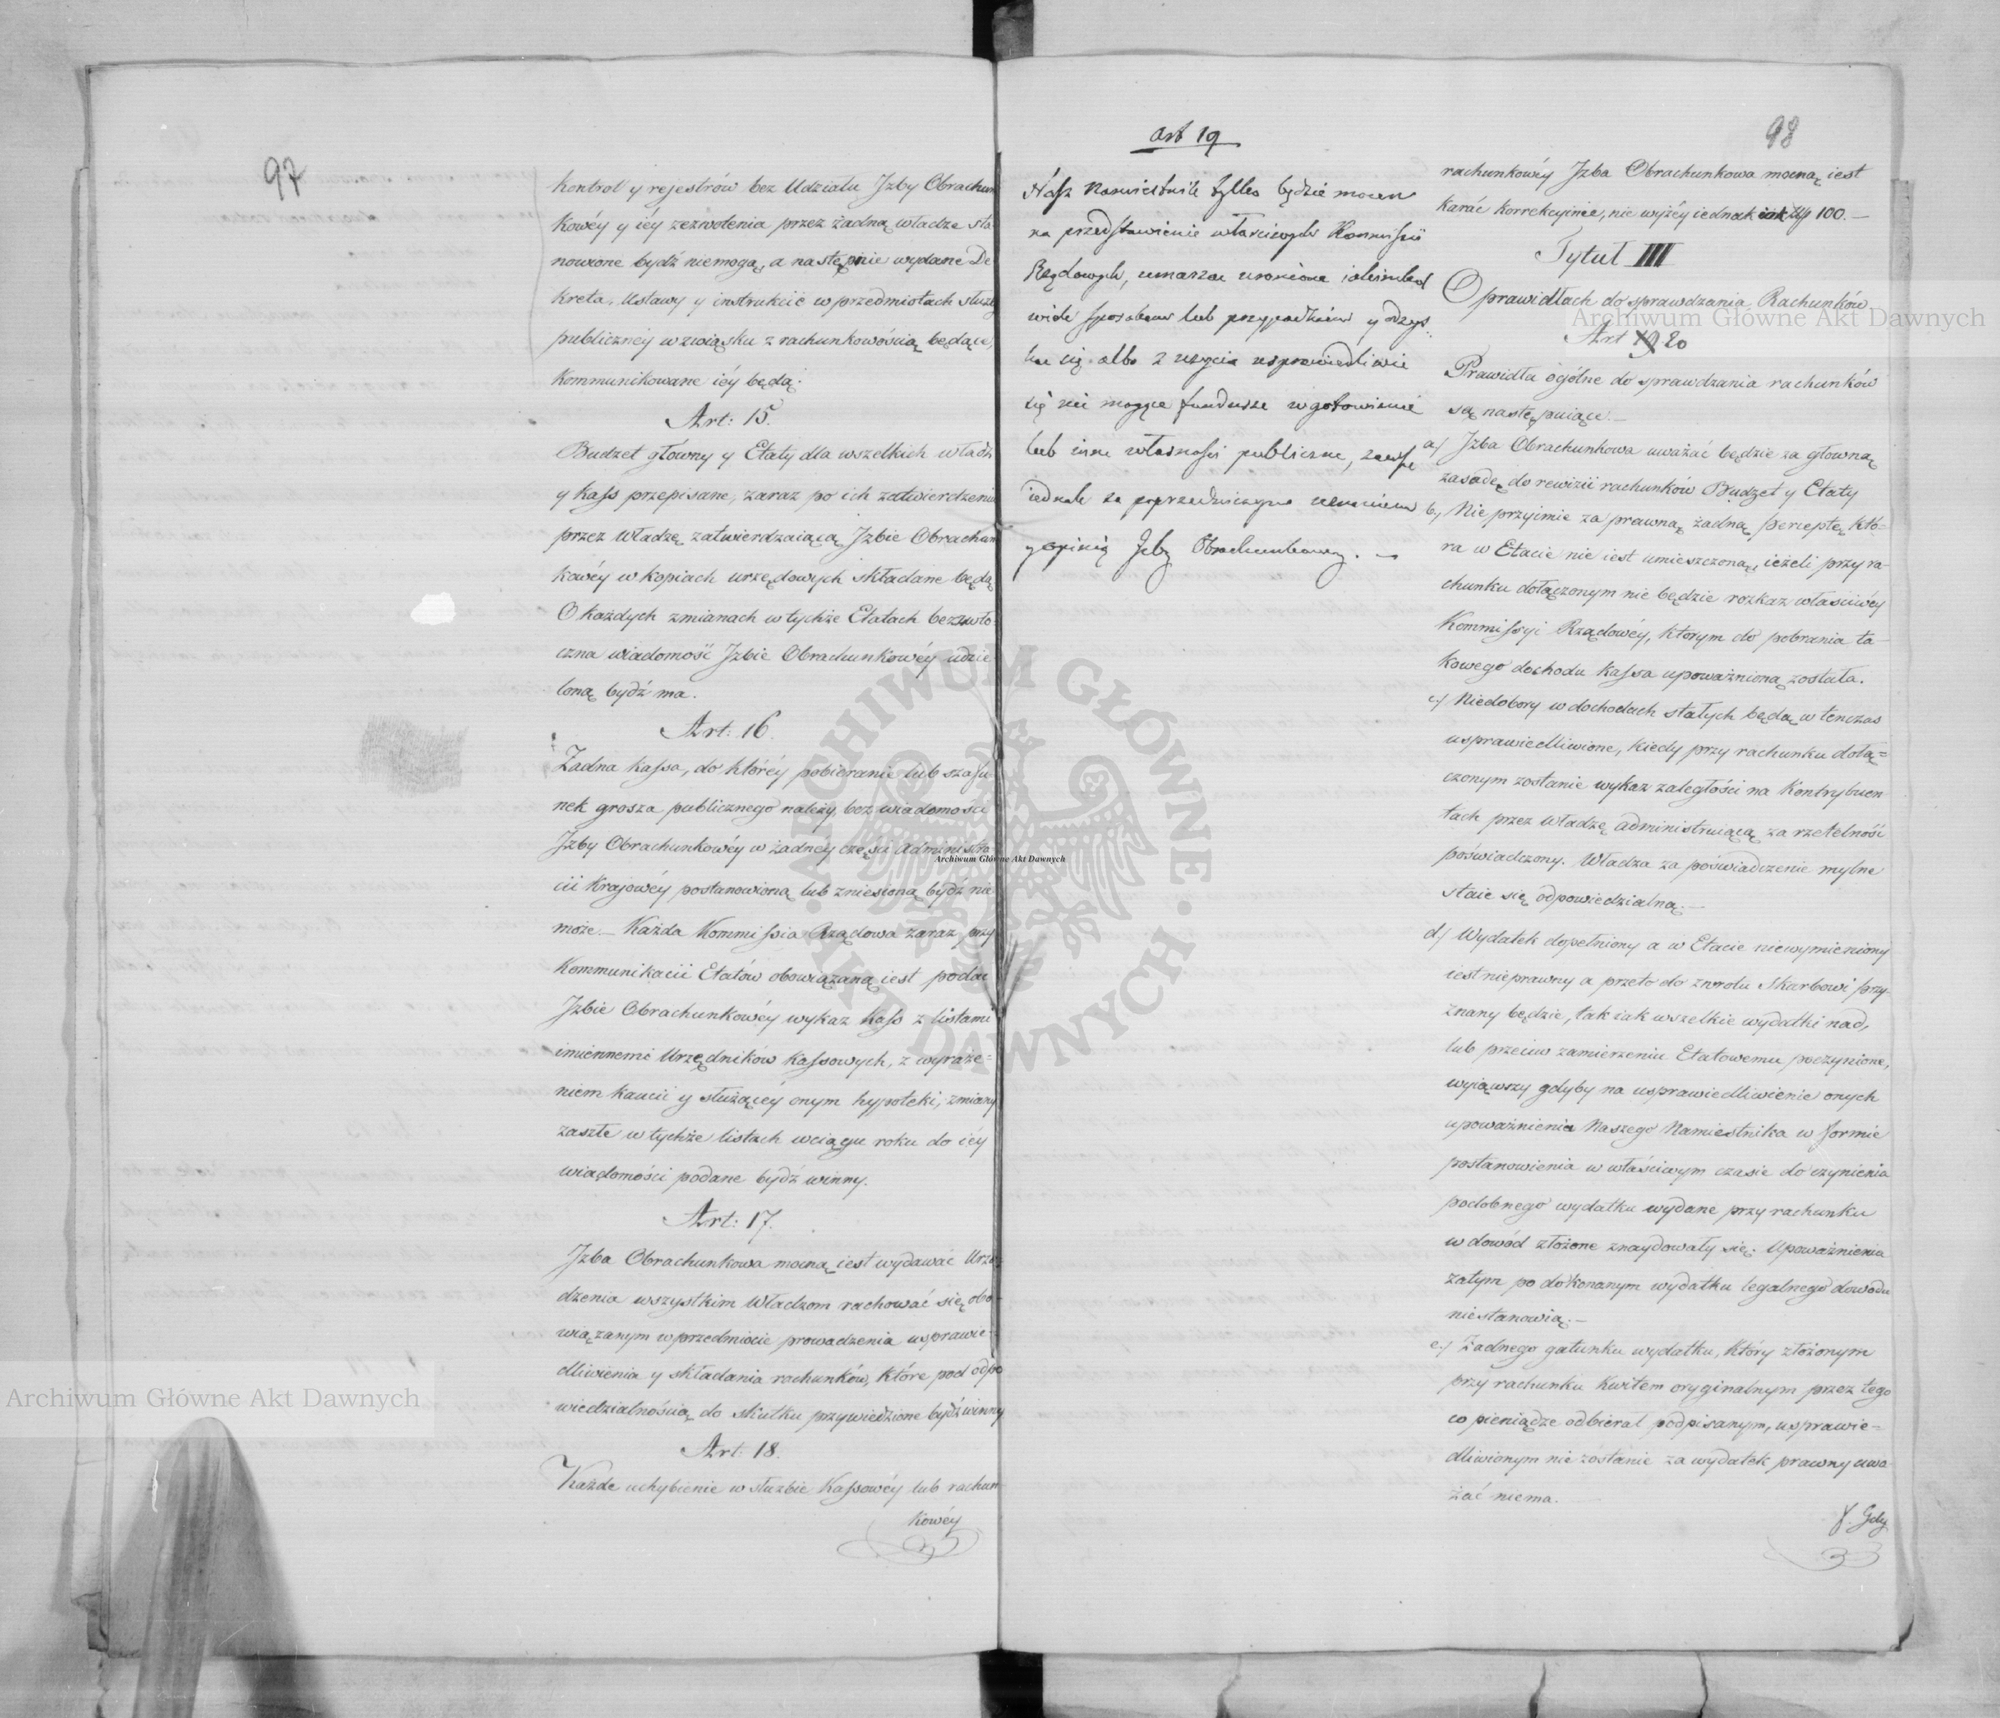 97
kontrol y rejestrów bez Udziału Jzby Obrachun
kowéy y iéy zezwolenia przez żadną władze sta-
nowione bydź niemogą, a następnie wydane De
kreta, Ustawy y instrukcie w przedmiotach służby
publiczney w związku z rachunkowością będące,
kommunikowane iéy będą.
Art: 15.
Budzet główny y Etaty dla wszelkich władz
y kass przepisane, zaraz po ich zatwierdzeniu
przez Władzę zatwierdzaiącą Jzbie Obrachun
kowéy w kopiach urzędowych składane będą
O każdych zmianach w tychże Etatach bezzwło-
czna wiadomość Jzbie Obrachunkowéy udzie-
loną bydź ma.
Art: 16.
Żadna kassa, do któréy pobieranie lub szafu
nek grosza publicznego należy, bez wiadomości
Jzby Obrachunkowéy w żadney części Administra
cii Krajowéy postanowioną lub zniesioną bydź nie
może.— Każda Kommissia Rządowa zaraz przy
Kommunikacii Etatów obowiązaną iest podać
Jzbie Obrachunkowéy wykaz kass z listami
imiennemi Urzędników kassowych, z wyraże=
niem kaucii y służącéy onym hypoteki; zmiany
zaszłe w tychże listach wciągu roku do iéy
wiadomości podane bydź winny.
Art: 17.
Jzba Obrachunkowa mocną iest wydawać Urzą
dzenia wszystkim Władzom rachować się obo-
wiązanym w przedmiocie prowadzenia usprawie-
dliwienia y składania rachunków, które pod odpo
wiedzialnością do skutku przywiedzione bydź winny
Art: 18.
Każde uchybienie w służbie Kassowéy lub rachun-
kowéy
Art 19
Nasz Namiestnik tylko będzie mocen
na przedstawienie właściwych Kommissii
Rządowych, umarzać uronione iakimkol
wiek sposobem lub przypadkiem y odzys
kać się albo z użycia usprawiedliwić
się nie mogące fundusze w gotowiźnie
lub inne własności publiczne, zawsze
iednak za poprzedniczym
y opinią Jzby Obrachunkowey. —
98
rachunkowéy Jzba Obrachunkowa mocną iest
karać korrekcyinie, nie wyżéy iednak iak 100.—
Tytuł III
O prawidłach do sprawdzania Rachunków
Art 19 20
Prawidła ogólne do sprawdzania rachunków
są następuiące.—
a/ Jzba Obrachunkowa uważać będzie za główną
zasadę do rewizii rachunków Budzet y Etaty
b/ Nie przyimie za prawną żadną perceptę któ-
ra w Etacie nie iest umieszczoną, ieżeli przy ra-
chunku dołączonym nie będzie rozkaz właściwéy
Kommissyi Rządowéy, którym do pobrania ta-
kowego dochodu kassa upoważnioną została.
c/ Niedobory w dochodach stałych będą w tenczas
usprawiedliwione, kiedy przy rachunku dołą=
czonym zostanie wykaz zaległości na Kontrybuen
tach przez władzę administruiącą za rzetelność
poświadczony. Władza za poświadczenie mylne
staie się odpowiedzialną.—
d/ Wydatek dopełniony a w Etacie niewymieniony
iest nieprawny a przeto do zwrotu Skarbowi przy-
znany będzie, tak iak wszelkie wydatki nad,
lub przeciw zamierzeniu Etatowemu poczynione,
wyiąwszy gdyby na usprawiedliwienie onych
upoważnienia Naszego Namiestnika w formie
postanowienia w właściwym czasie do czynienia
podobnego wydatku wydane przy rachunku
w dowód złożone znaydowały się. Upoważnienia
zatym po dokonanym wydatku legalnego dowodu
niestanowią.—
e/ Żadnego gatunku wydatku, który złożonym
przy rachunku kwitem oryginalnym przez tego
co pieniądze odbierał podpisanym, usprawie-
dliwionym nie zostanie za wydatek prawny uwa
żać niema.
f. Gdy
Archiwum Główne Akt Dawnych
Archiwum Główne Akt Dawnych
Archiwum Główne Akt Dawnych
ARCHIWUM GŁÓWNE · AKT DAWNYCH ·